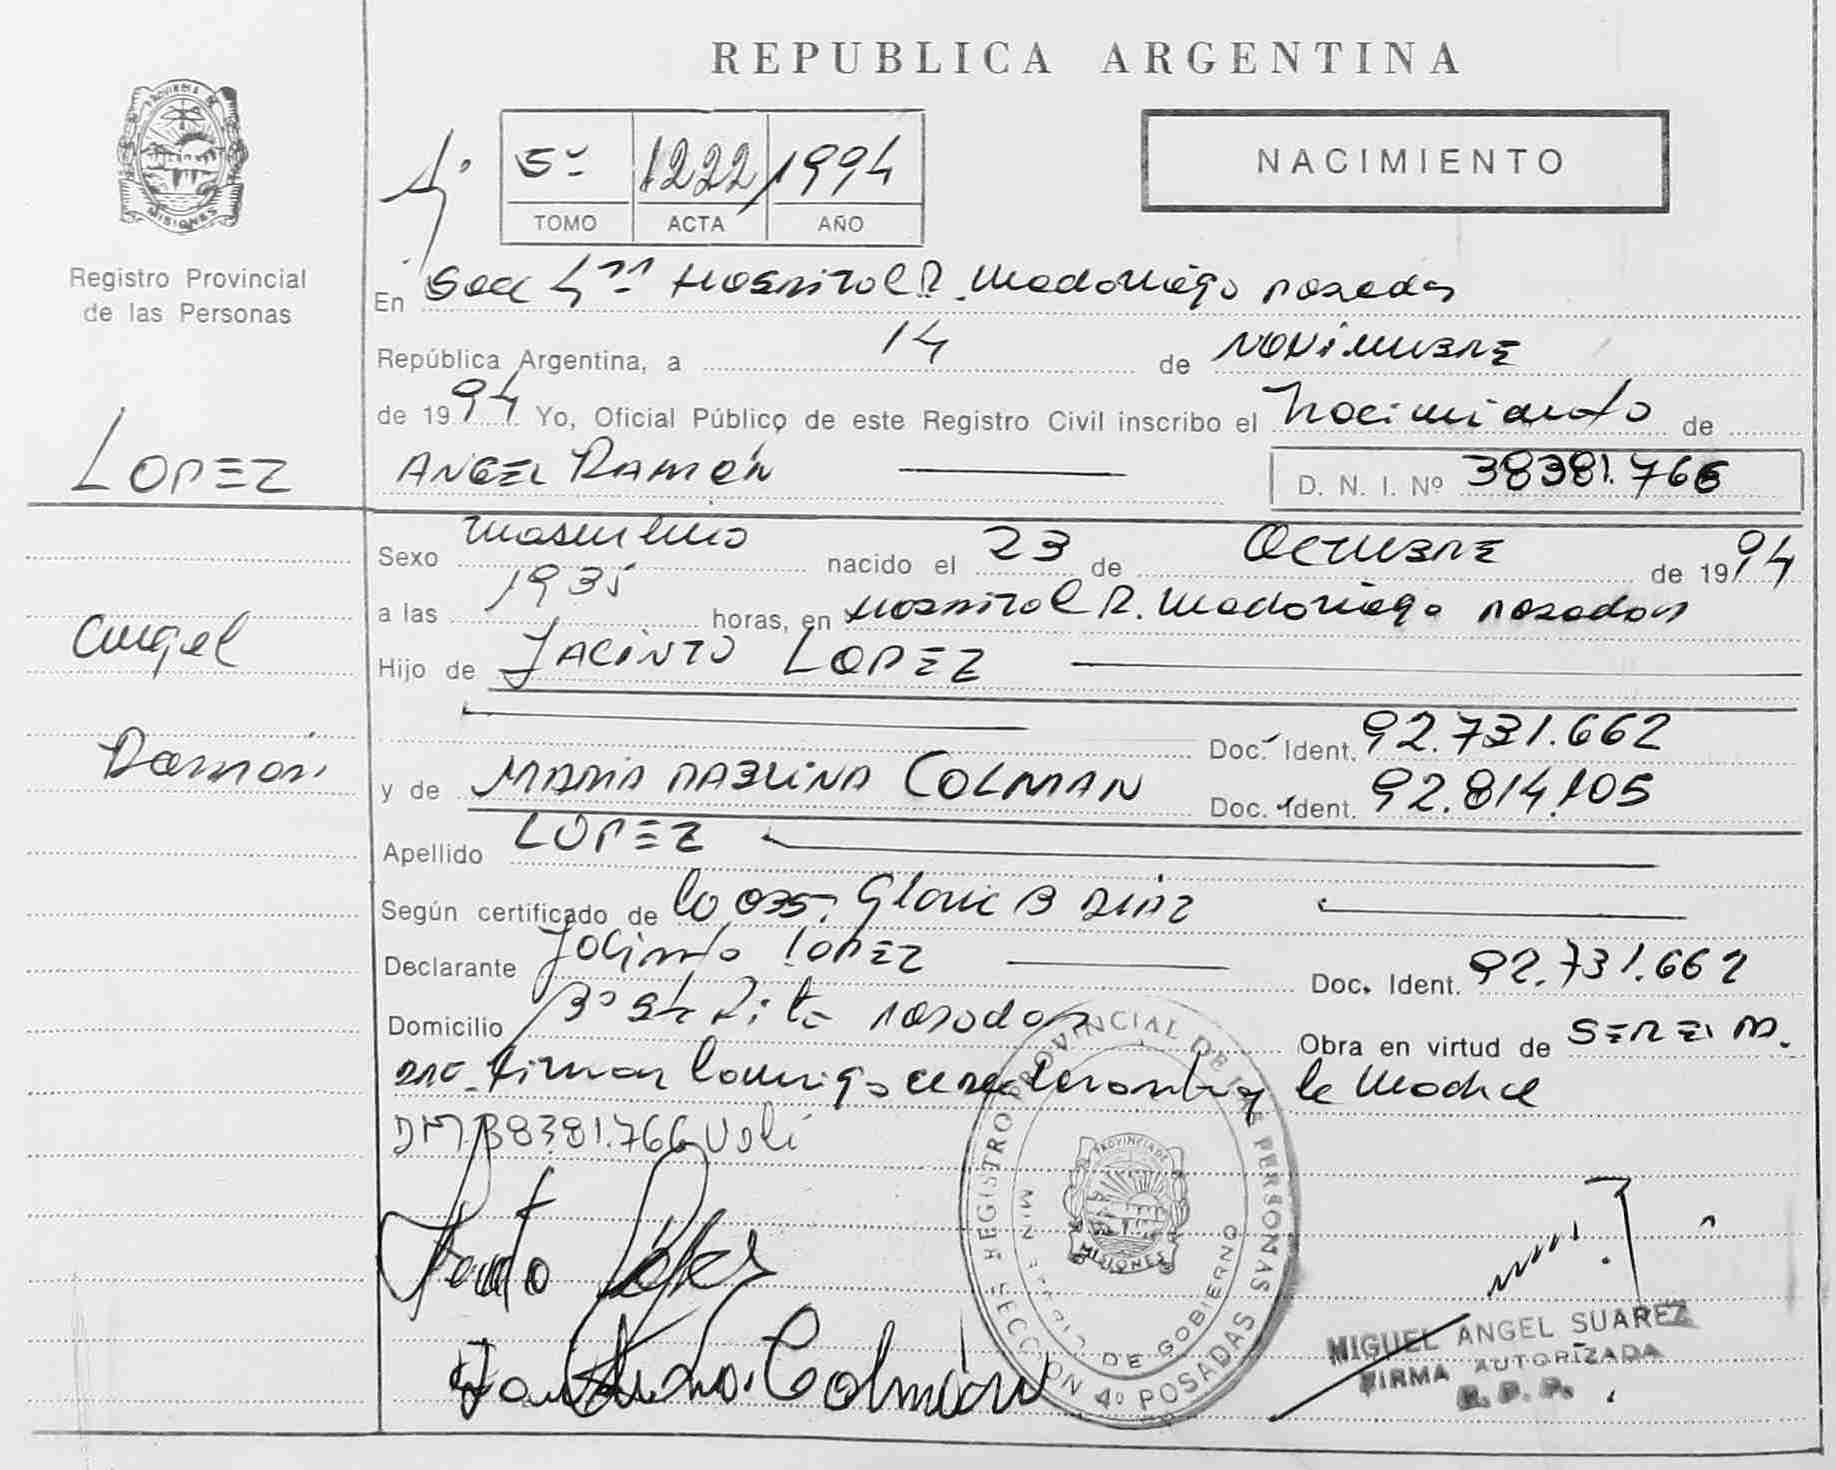 REPUBLICA ARGENTINA
PROVINCIA DE
MISIONES
Registro Provincial
de las Personas
4º
5º 1222 1994
TOMO ACTA AÑO
NACIMIENTO
En Secc 4ta Hospital R. Madariaga Posadas
República Argentina, a 14 de NOVIEMBRE
de 1994 Yo, Oficial Público de este Registro Civil inscribo el Nacimiento de
LOPEZ
ANGEL RAMÓN D. N. I. Nº 38381.766
Sexo masculino nacido el 23 de OCTUBRE de 1994
a las 1935 horas, en Hospital R. Madariaga Posadas
Angel
Hijo de JACINTO LOPEZ
Doc. Ident. 92.731.662
Ramón
y de MARIA COLMAN Doc. Ident. 92.814.105
Apellido LOPEZ
Según certificado de la OBS. Gloria B DIAZ
Declarante Jacinto LOPEZ Doc. Ident. 92.731.662
Domicilio Bº Sta Rita Posadas Obra en virtud de SER EL P.
firman conmigo el declarante y la Madre
DNI 38381.766 Vale
Jacinto López
Colmán
REGISTRO PROVINCIAL DE LAS PERSONAS
SECCION 4º POSADAS
MINISTERIO DE GOBIERNO
PROVINCIA DE
MISIONES
MIGUEL ANGEL SUAREZ
FIRMA AUTORIZADA
R. P. P.